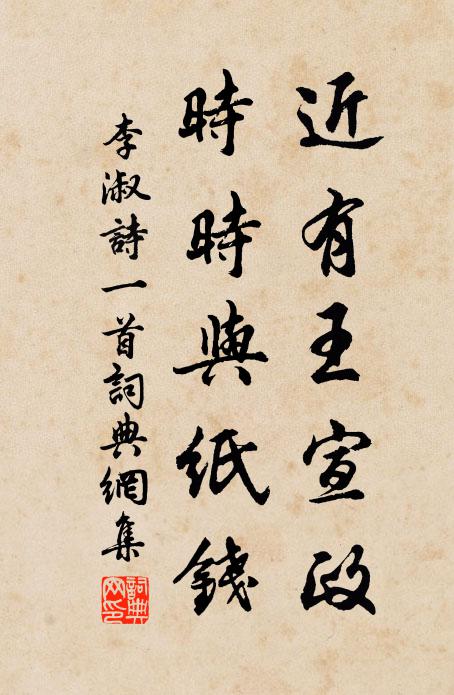 近有王宣政
時時與紙錢
李淑詩一首詞典網集
詞典網印